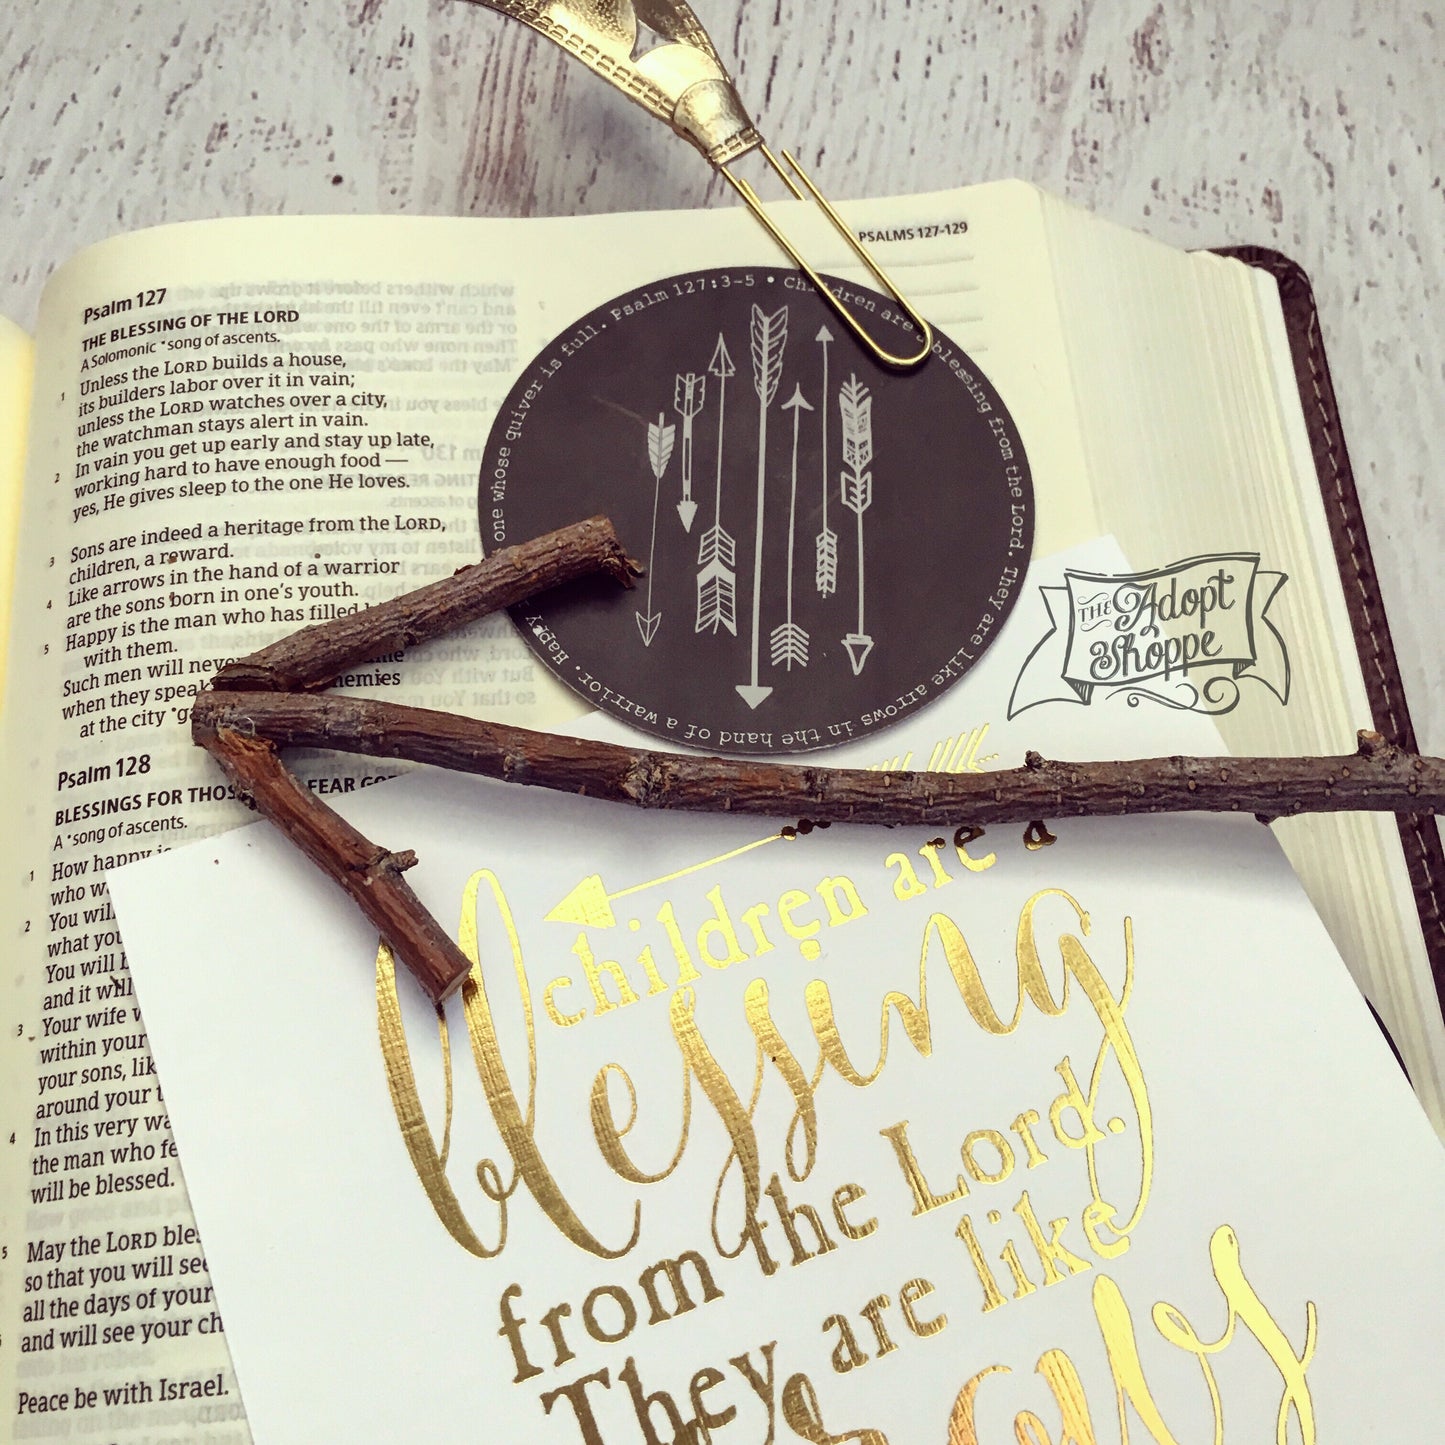 PSALMS 127-129
Psalm 127
THE BLESSING OF THE LORD
A Solomonic *song of ascents.
1 Unless the LORD builds a house,
its builders labor over it in vain;
unless the LORD watches over a city,
the watchman stays alert in vain.
2 In vain you get up early and stay up late,
working hard to have enough food —
yes, He gives sleep to the one He loves.
3 Sons are indeed a heritage from the LORD,
children, a reward.
4 Like arrows in the hand of a warrior
are the sons born in one's youth.
5 Happy is the man who has filled
with them.
Such men will never
when they speak enemies
at the city
Psalm 128
BLESSINGS FOR THOSE FEAR
A *song of ascents.
1 How happy is
who
2 You will
what you
You will
and it will
3 Your wife
within your
your sons,
around your
4 In this very
the man who
will be blessed.
5 May the LORD
so that you will see
all the days of your
and will see your
Peace be with Israel.
Psalm 127:3-5 • Children are a blessing from the Lord. They are like arrows in the hand of a warrior. Happy one whose quiver is full.
THE Adopt
Shoppe
children are a
blessing
from the Lord.
They are like